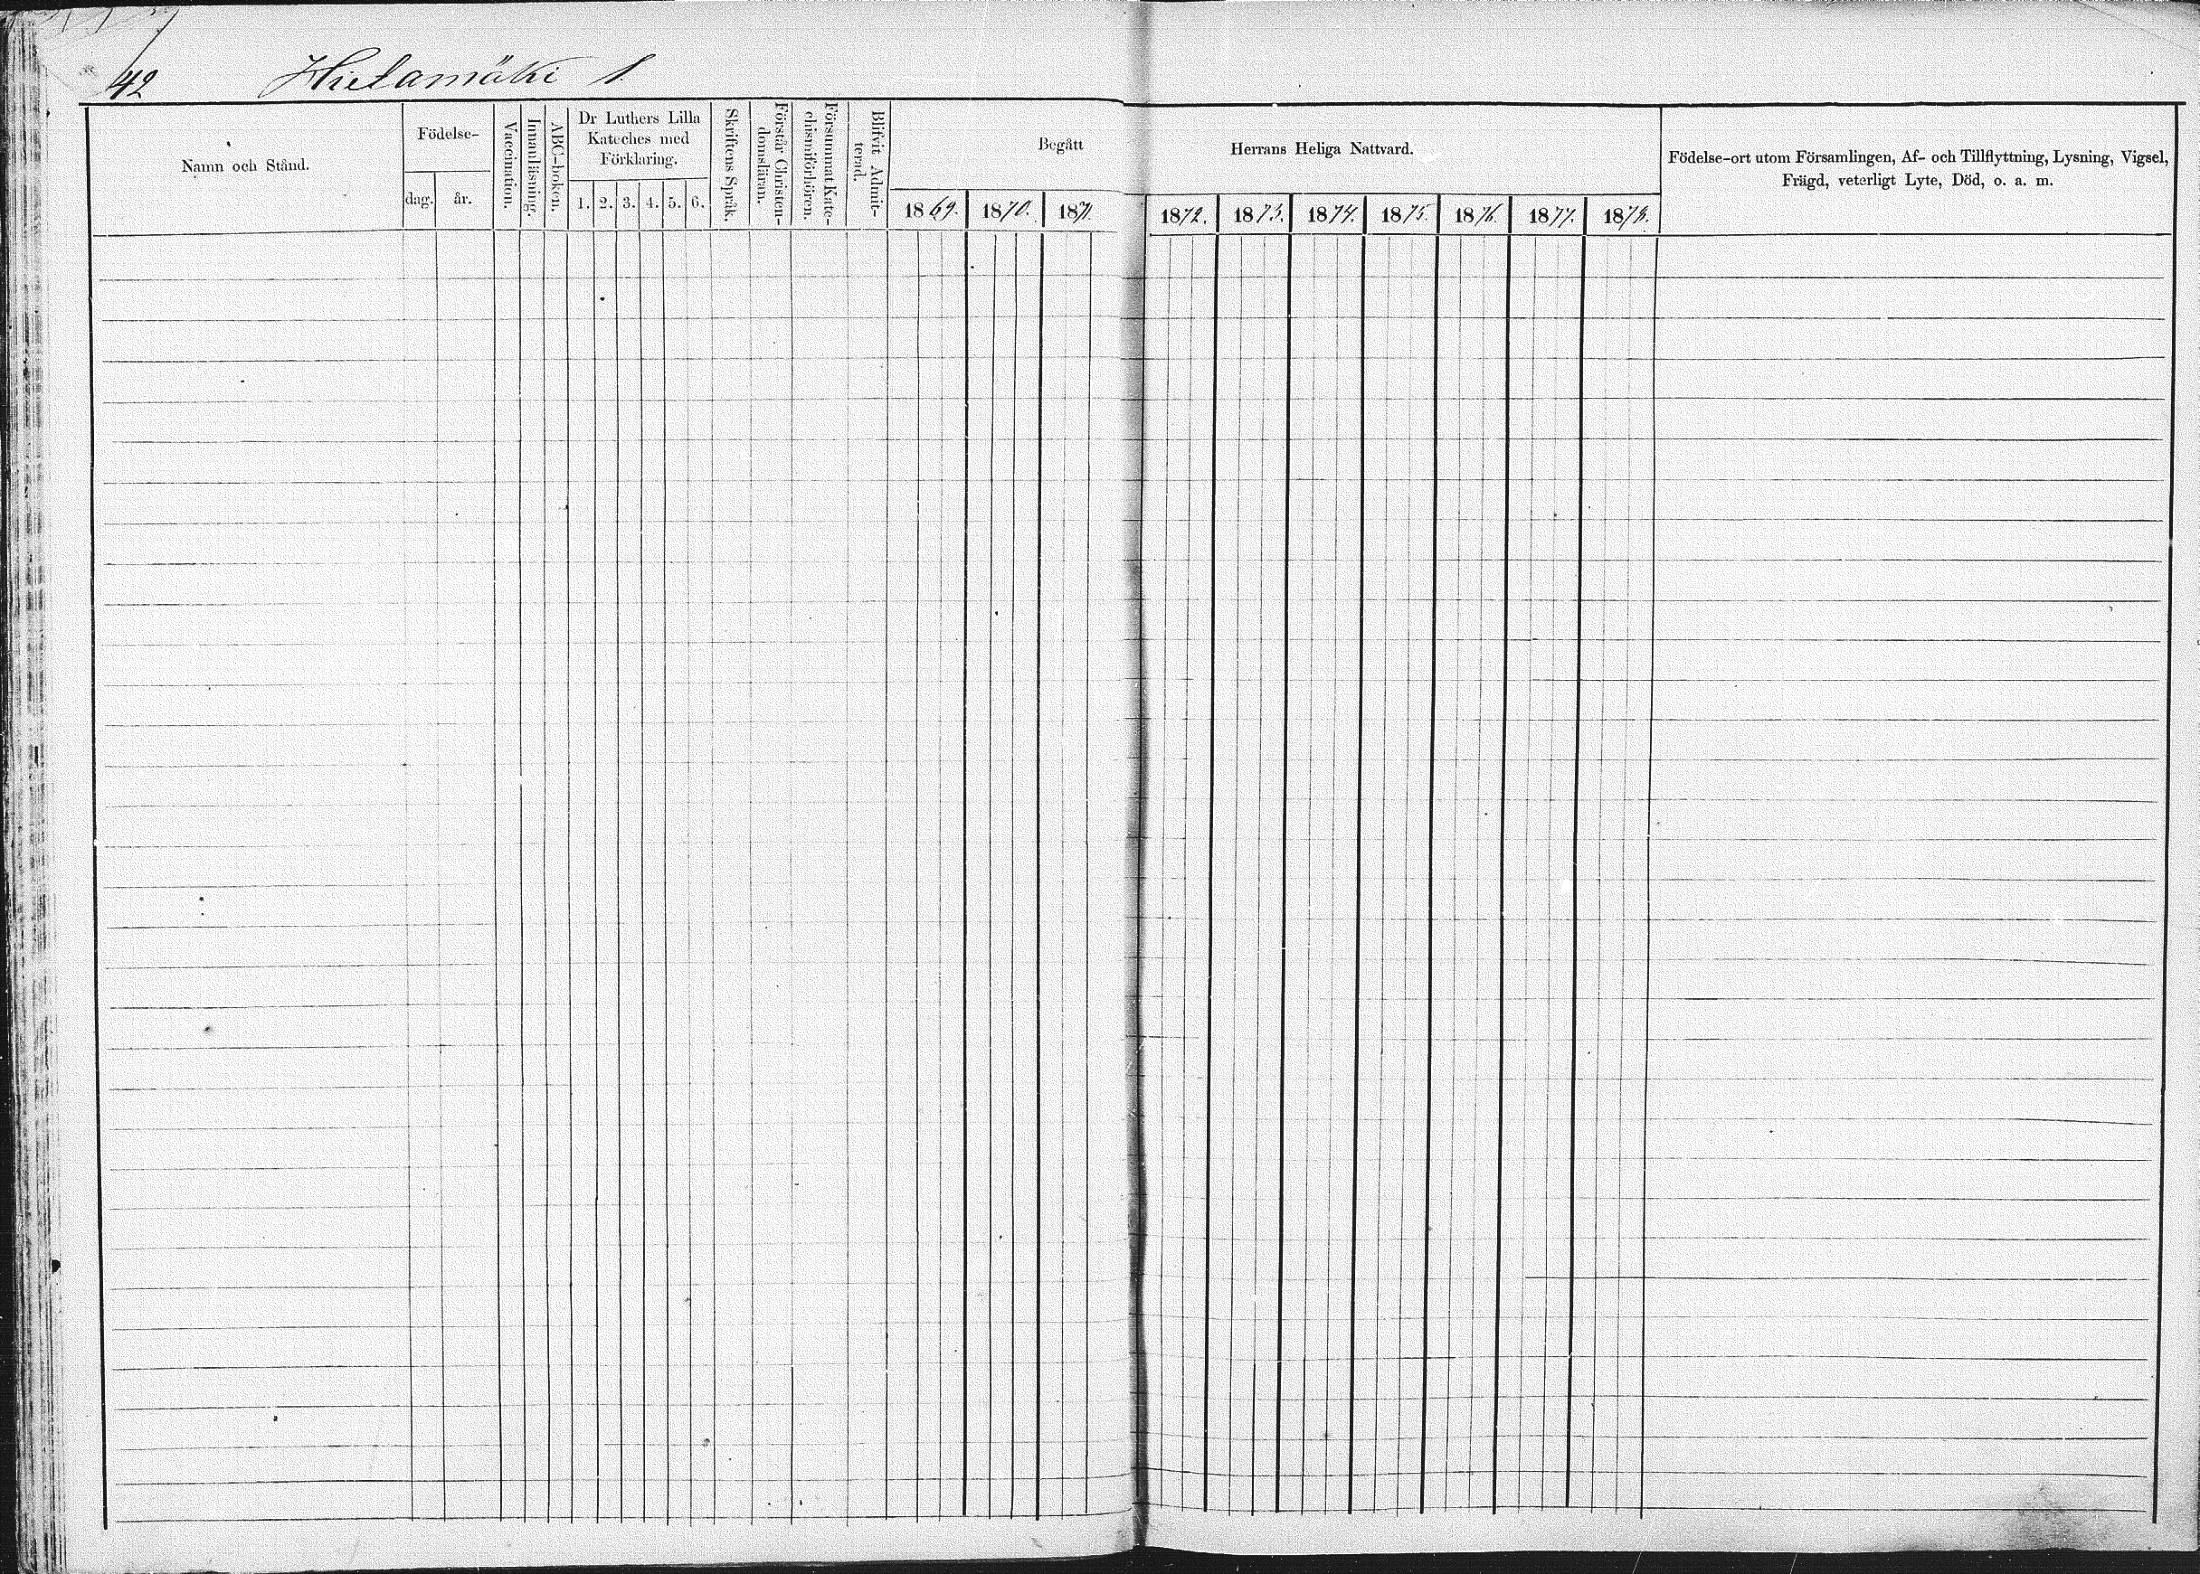 42 Hietamäki 1.
Namn och Stånd.
Födelse-
dag.
år.
Vaccination.
Innanläsning.
ABC-boken.
Dr Luthers Lilla
Kateches med
Förklaring.
1. 2. 3. 4. 5. 6.
Skriftens Språk.
Förstår Christen-
domsläran.
Försummat Kate-
chismiförhören.
Blifvit Admit-
terad.
Begått Herrans Heliga Nattvard.
1869. 1870. 1871. 1872. 1873. 1874. 1875. 1876. 1877. 1878.
Födelse-ort utom Församlingen, Af- och Tillflyttning, Lysning, Vigsel,
Frägd, veterligt Lyte, Död, o. a. m.